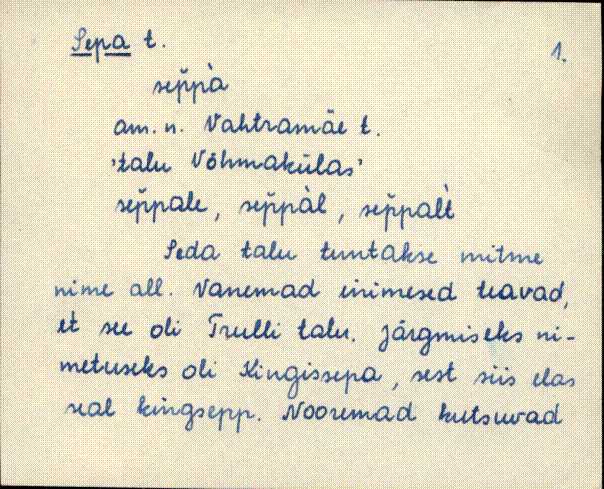 Sepa t.
1.
sep̆pà
am. n. Vahtramäe t.
'talu Võhmakülas'
sep̆pale, sep̆pàl, sep̆palt̀
Seda talu tuntakse mitme
nime all. Vanemad inimesed teavad,
et̀ see oli Trulli talu. Järgmiseks ni-
metuseks oli Kingissepa, sest siis elas
seal kingsepp. Nooremad kutsuvad